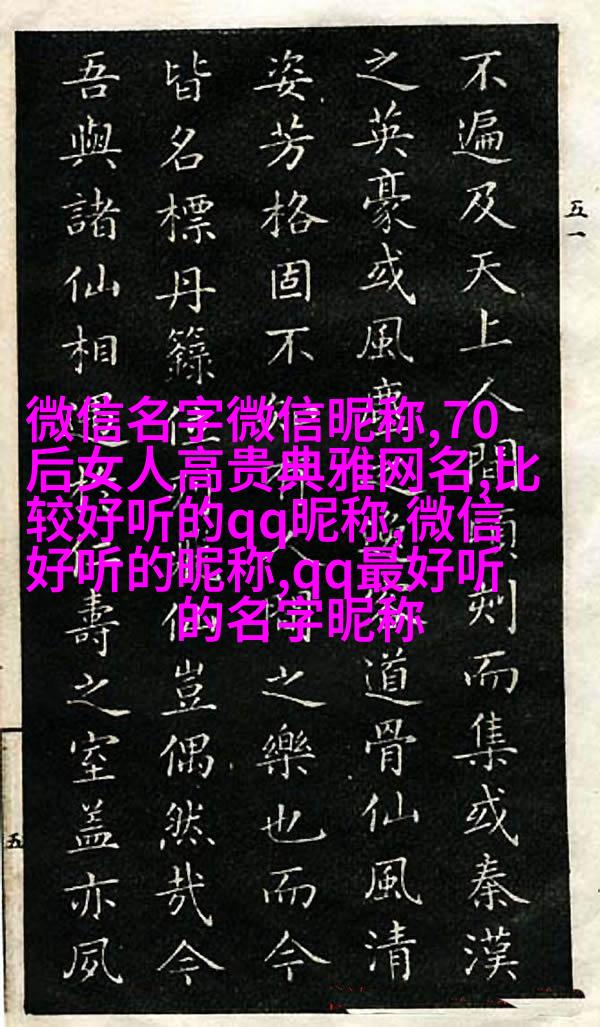 微信名字微信昵称,70
后女人高贵典雅网名,比
较好听的qq昵称,微信
好听的昵称,qq最好听
的名字昵称
五一
不遍及天上人間頃刻而集或秦漢
之英豪或風塵道骨仙風清
姿芳格固不人間之樂也而今
皆名標丹籙豈偶然哉今
吾與諸仙相遇於仁壽之室蓋亦夙
五